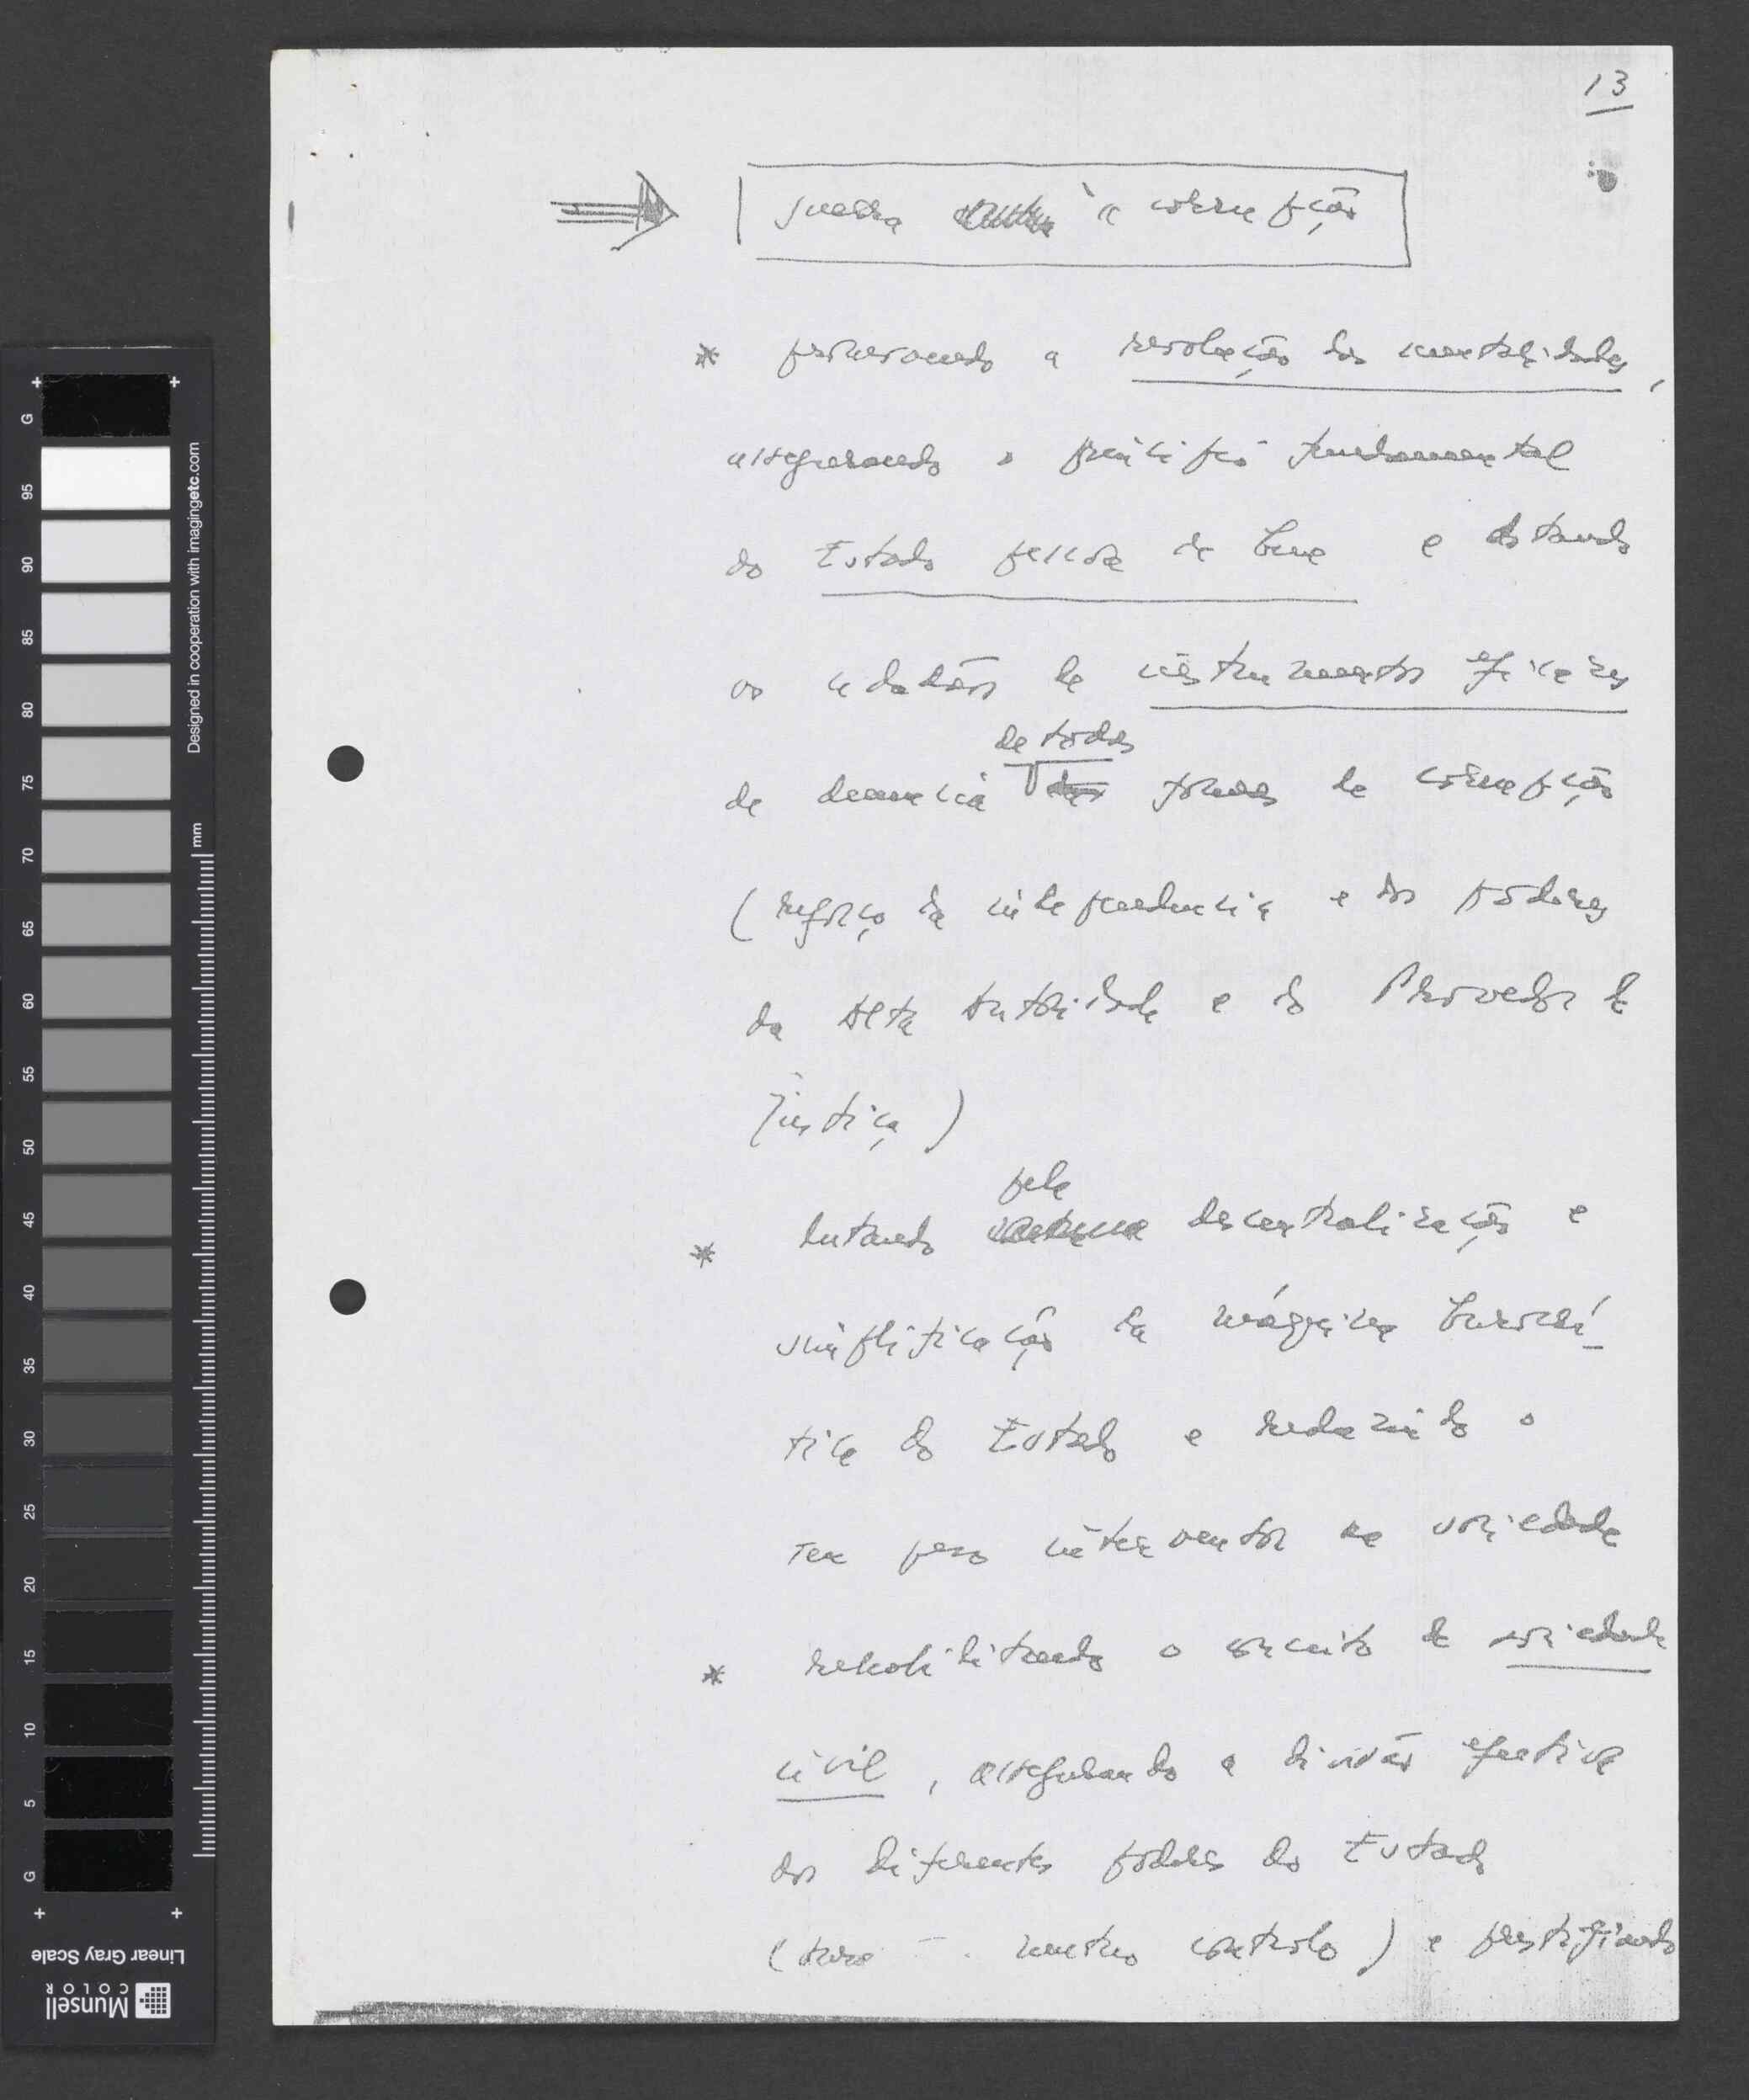 13
guerra à corrupção
* promovendo a revolução das mentalidades,
assegurando o princípio fundamental
do Estado pessoa de bem e dotando
os cidadãos de instrumentos eficazes
de todas
de denúncia das formas de corrupção
(reforço da independência e dos poderes
da Alta Autoridade e do Provedor de
Justiça)
pela
* lutando descentralização e
simplificação da máquina burocrá-
tica do Estado e reduzindo o
seu peso interventor na sociedade
* rehabilitando o conceito de sociedade
civil, assegurando a divisão efectiva
dos diferentes poderes do Estado
( mútuo controlo) e prestigiando
G 95 90 85 80 75 70 65 60 55 50 45 40 35 30 25 20 15 10 5 G
Designed in cooperation with imagingetc.com
mm
Linear Gray Scale
Munsell
COLOR